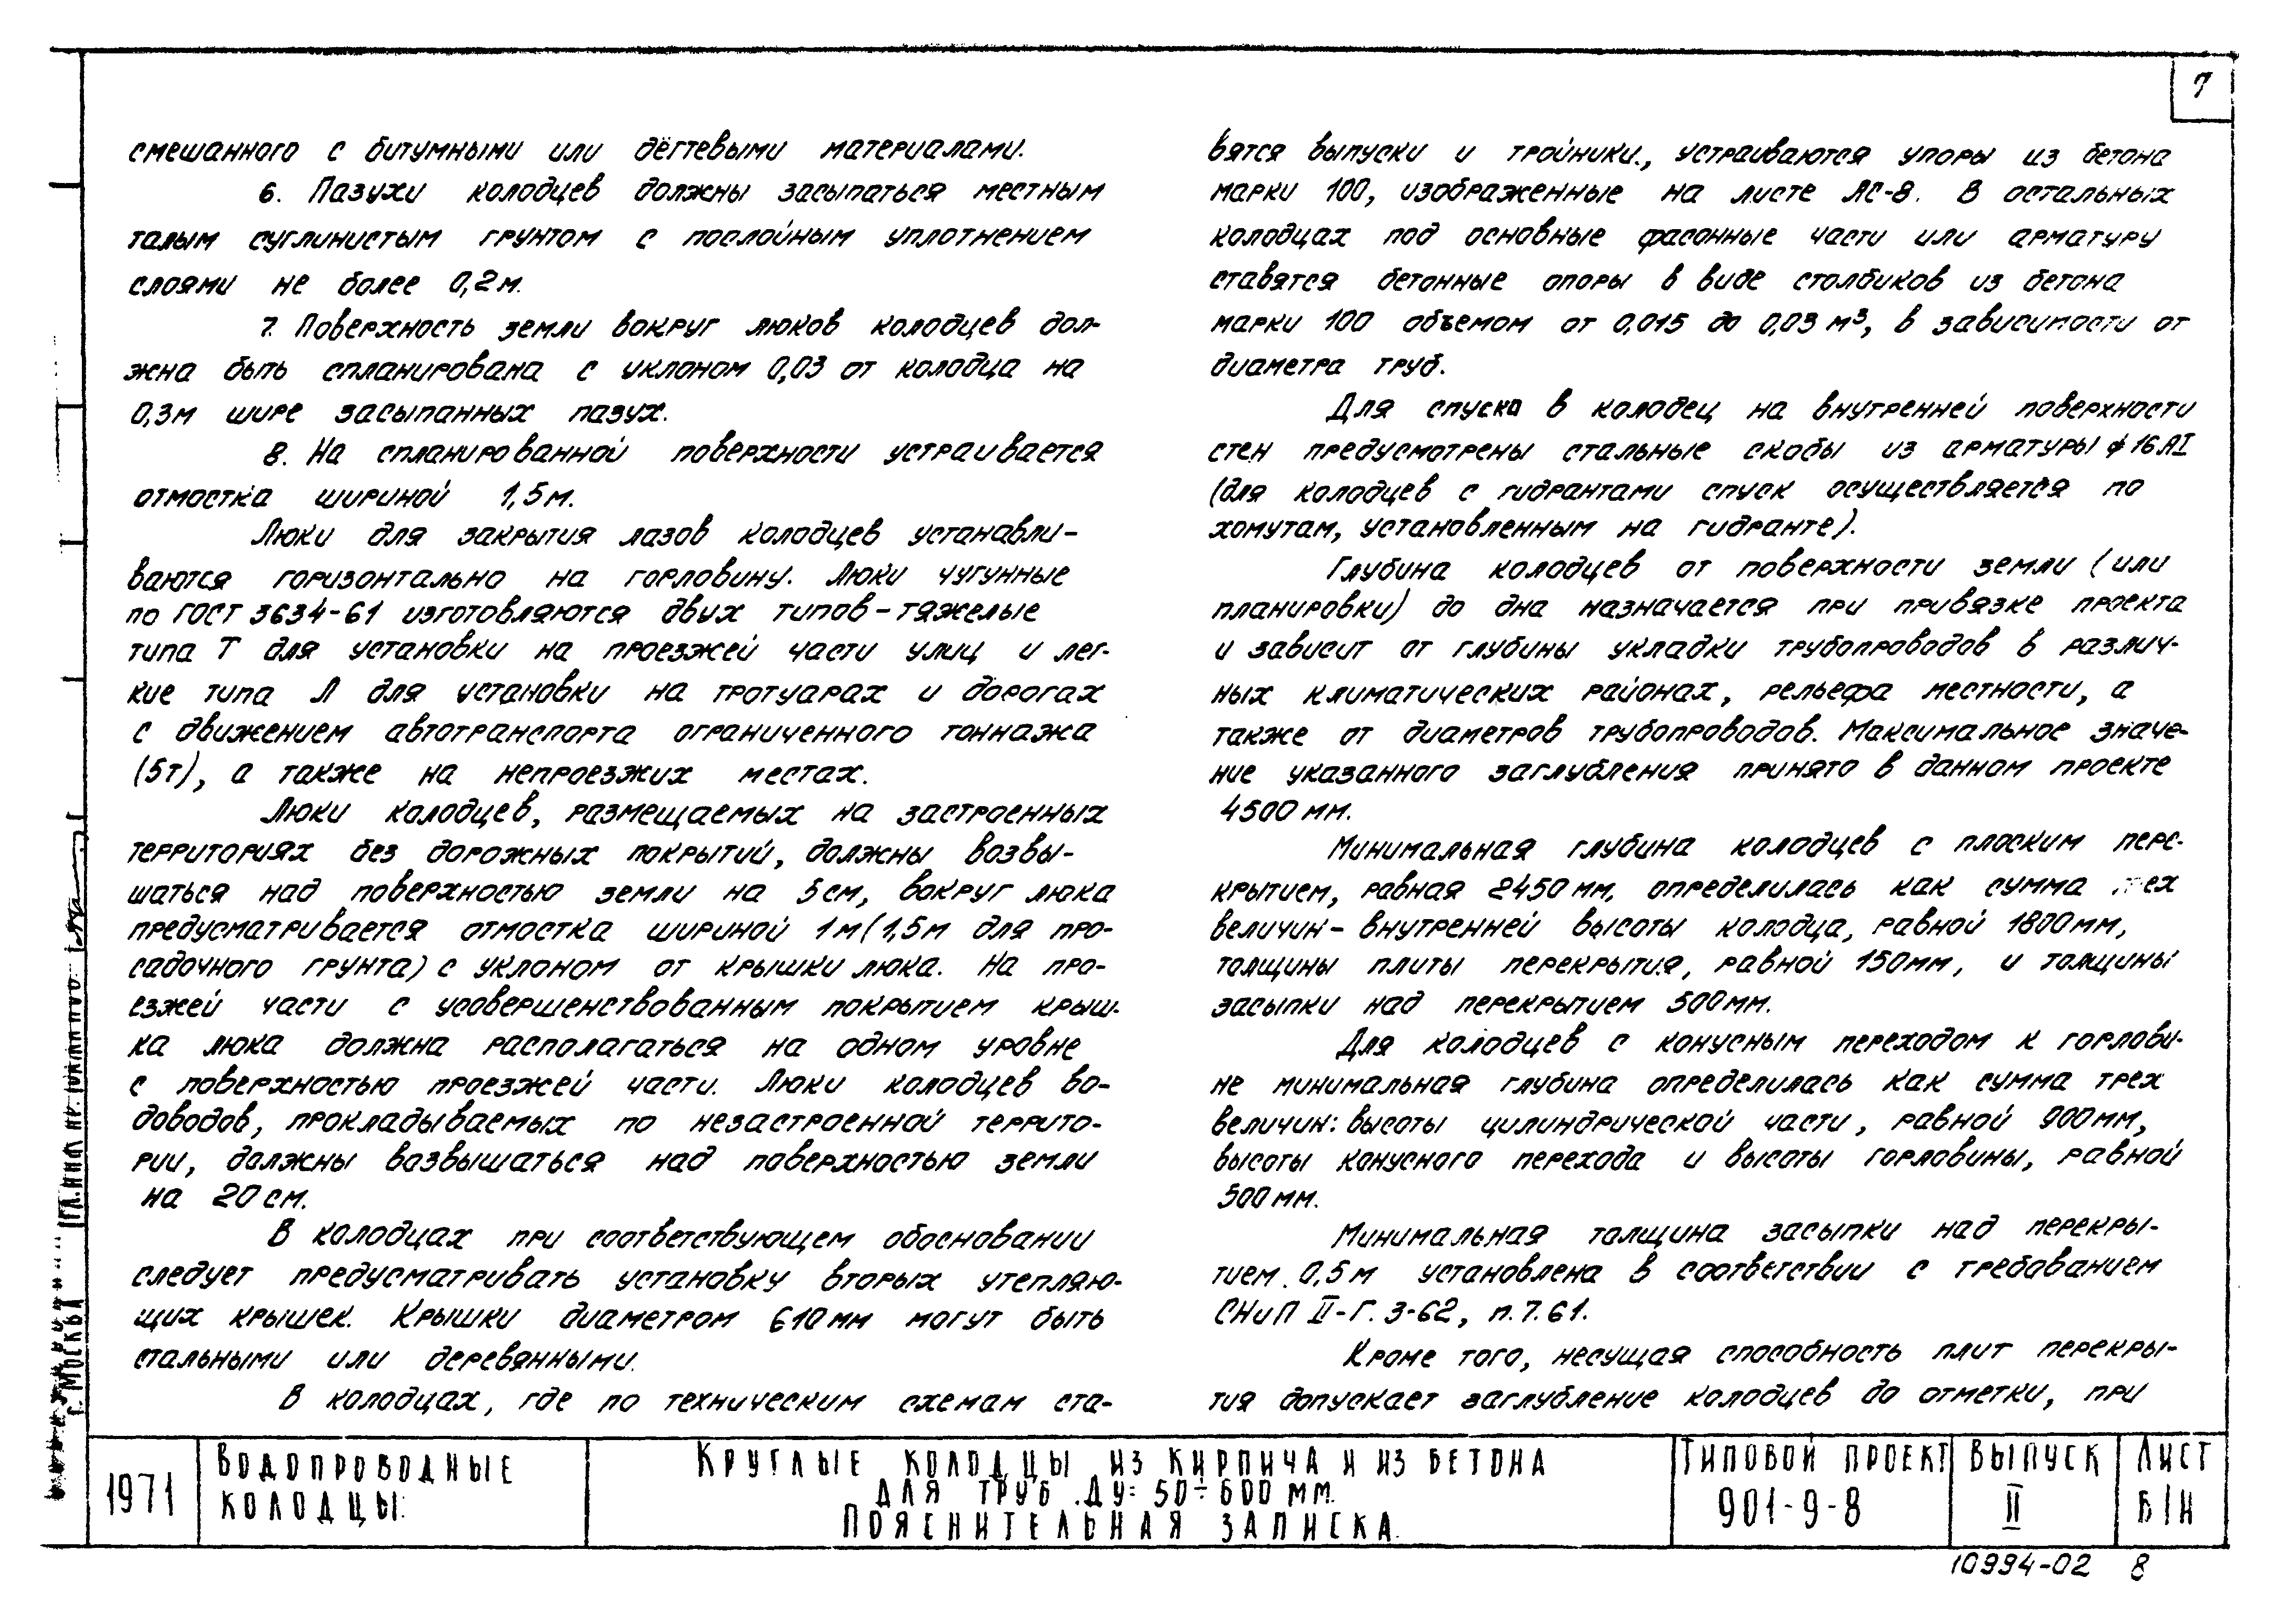 7
смешанного с битумными или дёгтевыми материалами.
6. Пазухи колодцев должны засыпаться местным
талым суглинистым грунтом с послойным уплотнением
слоями не более 0,2м.
7. Поверхность земли вокруг люков колодцев дол-
жна быть спланирована с уклоном 0,03 от колодца на
0,3м шире засыпанных пазух.
8. На спланированной поверхности устраивается
отмостка шириной 1,5м.
Люки для закрытия лазов колодцев устанавли-
ваются горизонтально на горловину. Люки чугунные
по ГОСТ 3634-61 изготовляются двух типов - тяжелые
типа Т для установки на проезжей части улиц и лег-
кие типа Л для установки на тротуарах и дорогах
с движением автотранспорта ограниченного тоннажа
(5т), а также на непроезжих местах.
Люки колодцев, размещаемых на застроенных
территориях без дорожных покрытий, должны возвы-
шаться над поверхностью земли на 5см, вокруг люка
предусматривается отмостка шириной 1м (1,5м для про-
садочного грунта) с уклоном от крышки люка. На про-
езжей части с усовершенствованным покрытием крыш-
ка люка должна располагаться на одном уровне
с поверхностью проезжей части. Люки колодцев во-
доводов, прокладываемых по незастроенной террито-
рии, должны возвышаться над поверхностью земли
на 20см.
В колодцах при соответствующем обосновании
следует предусматривать установку вторых утепляю-
щих крышек. Крышки диаметром 610мм могут быть
стальными или деревянными.
В колодцах, где по техническим схемам ста-
вятся выпуски и тройники., устраиваются упоры из бетона
марки 100, изображенные на листе ЛС-8. В остальных
колодцах под основные фасонные части или арматуру
ставятся бетонные опоры в виде столбиков из бетона
марки 100 объемом от 0,015 до 0,03 м³, в зависимости от
диаметра труб.
Для спуска в колодец на внутренней поверхности
стен предусмотрены стальные скобы из арматуры ϕ16АI
(для колодцев с гидрантами спуск осуществляется по
хомутам, установленным на гидранте).
Глубина колодцев от поверхности земли (или
планировки) до дна назначается при привязке проекта
и зависит от глубины укладки трубопроводов в различ-
ных климатических районах, рельефа местности, а
также от диаметров трубопроводов. Максимальное значе-
ние указанного заглубления принято в данном проекте
4500мм.
Минимальная глубина колодцев с плоским пере-
крытием, равная 2450мм, определилась как сумма трех
величин - внутренней высоты колодца, равной 1800мм,
толщины плиты перекрытия, равной 150мм, и толщины
засыпки над перекрытием 500мм.
Для колодцев с конусным переходом к горлови-
не минимальная глубина определилась как сумма трех
величин: высоты цилиндрической части, равной 900мм,
высоты конусного перехода и высоты горловины, равной
500мм.
Минимальная толщина засыпки над перекры-
тием 0,5м установлена в соответствии с требованием
СНиП II-Г. 3-62, п.7.61.
Кроме того, несущая способность плит перекры-
тия допускает заглубление колодцев до отметки, при
г. Москва
1971
Водопроводные
колодцы.
Круглые колодцы из кирпича и из бетона
для труб Ду=50÷600 мм.
Пояснительная записка.
Типовой проект
901-9-8
Выпуск
II
Лист
Б/Н
10994-02 8